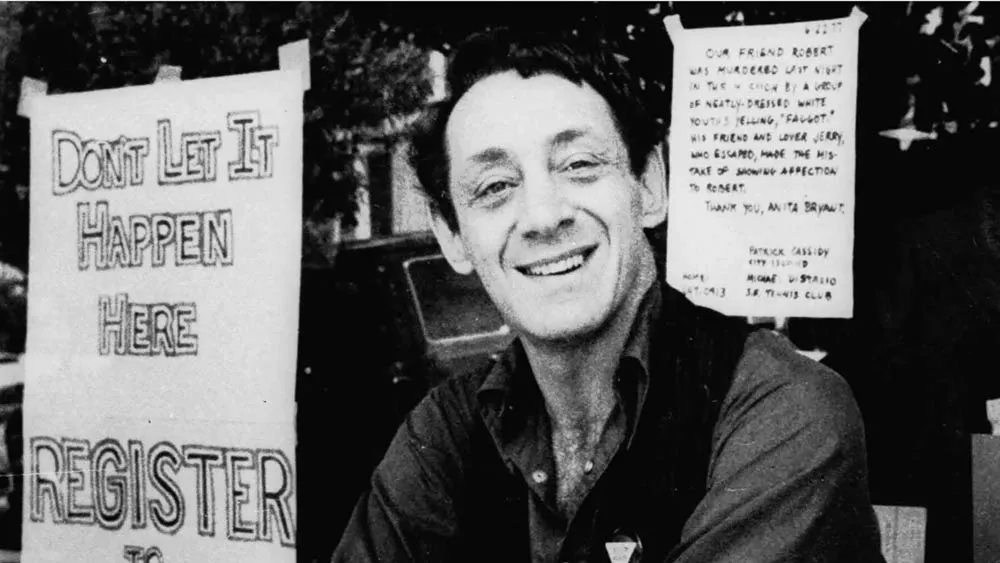 DON'T LET IT
HAPPEN
HERE
REGISTER
TO
6-22-77
OUR FRIEND ROBERT
WAS MURDERED LAST NIGHT
IN THE BY A GROUP
OF NEATLY-DRESSED WHITE
YOUTHS YELLING, "FAGGOT."
HIS FRIEND AND LOVER JERRY,
WHO ESCAPED, MADE THE MIS-
TAKE OF SHOWING AFFECTION
TO ROBERT.
THANK YOU, ANITA BRYANT.
PATRICK CASSIDY
CITY
MICHAEL DISTASIO
S.F. TENNIS CLUB